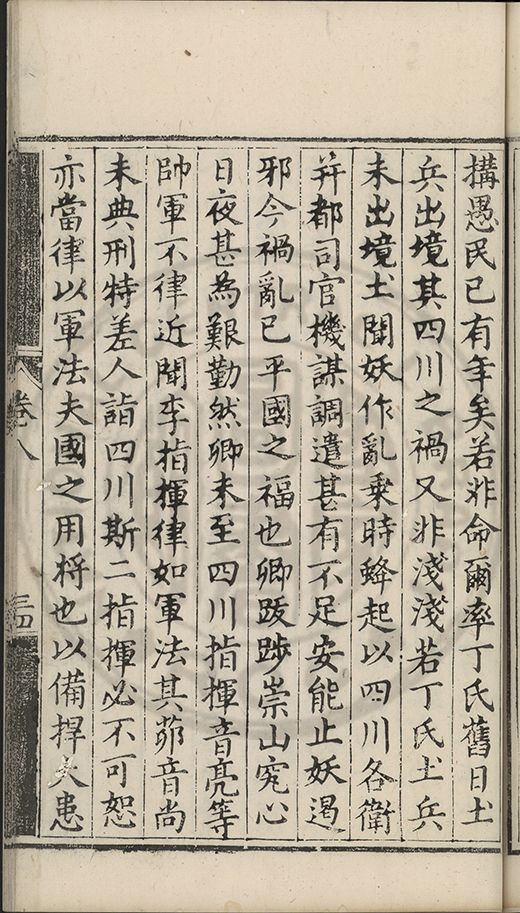 搆愚民已有年矣若非命爾率丁氏舊日土
兵出境其四川之禍又非淺淺若丁氏土兵
未出境土聞妖作亂乗時蜂起以四川各衛
并都司官機謀調遣甚有不足安能止妖遏
邪今禍亂已平國之福也卿跋踄崇山究心
日夜甚為艱勤然卿未至四川指揮音亮等
帥軍不律近聞李指揮律如軍法其茆音尚
未典刑特差人詣四川斯二指揮必不可恕
亦當律以軍法夫國之用将也以備捍大患
卷八
三四